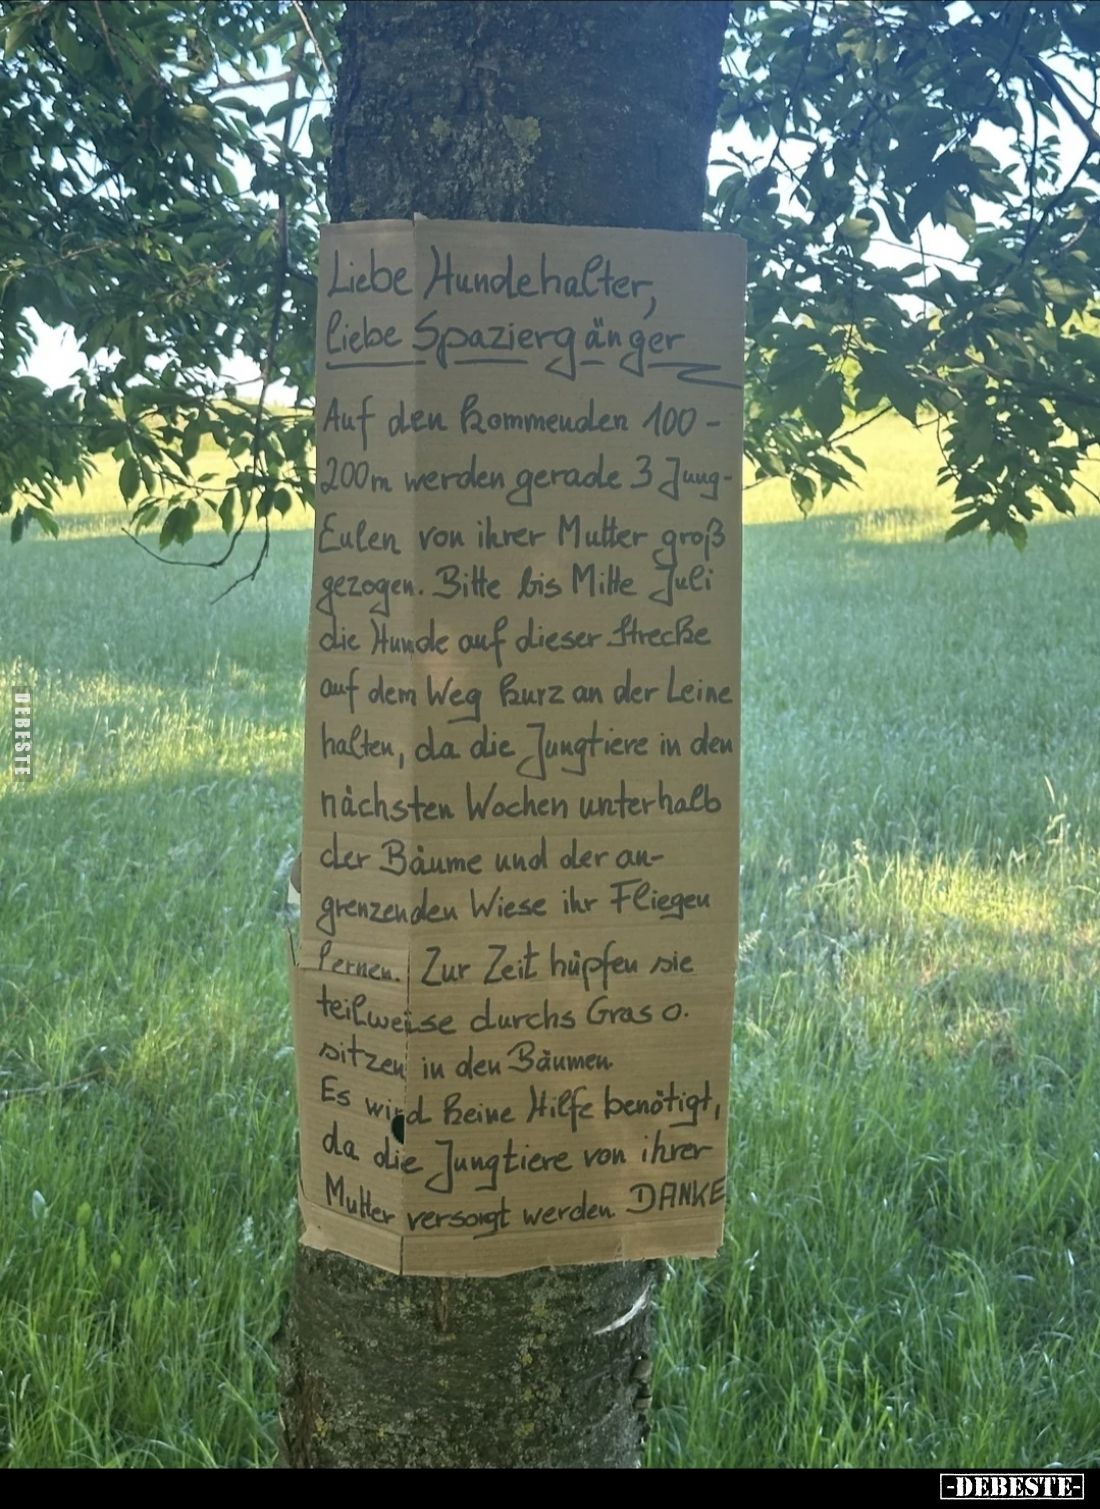 Liebe Hundehalter,
liebe Spaziergänger
Auf den kommenden 100-
200m werden gerade 3 Jung-
Eulen von ihrer Mutter groß
gezogen. Bitte bis Mitte Juli
die Hunde auf dieser Strecke
auf dem Weg kurz an der Leine
halten, da die Jungtiere in den
nächsten Wochen unterhalb
der Bäume und der an-
grenzenden Wiese ihr Fliegen
lernen. Zur Zeit hüpfen sie
teilweise durchs Gras o.
sitzen in den Bäumen.
Es wird keine Hilfe benötigt,
da die Jungtiere von ihrer
Mutter versorgt werden. DANKE
DEBESTE
-DEBESTE-